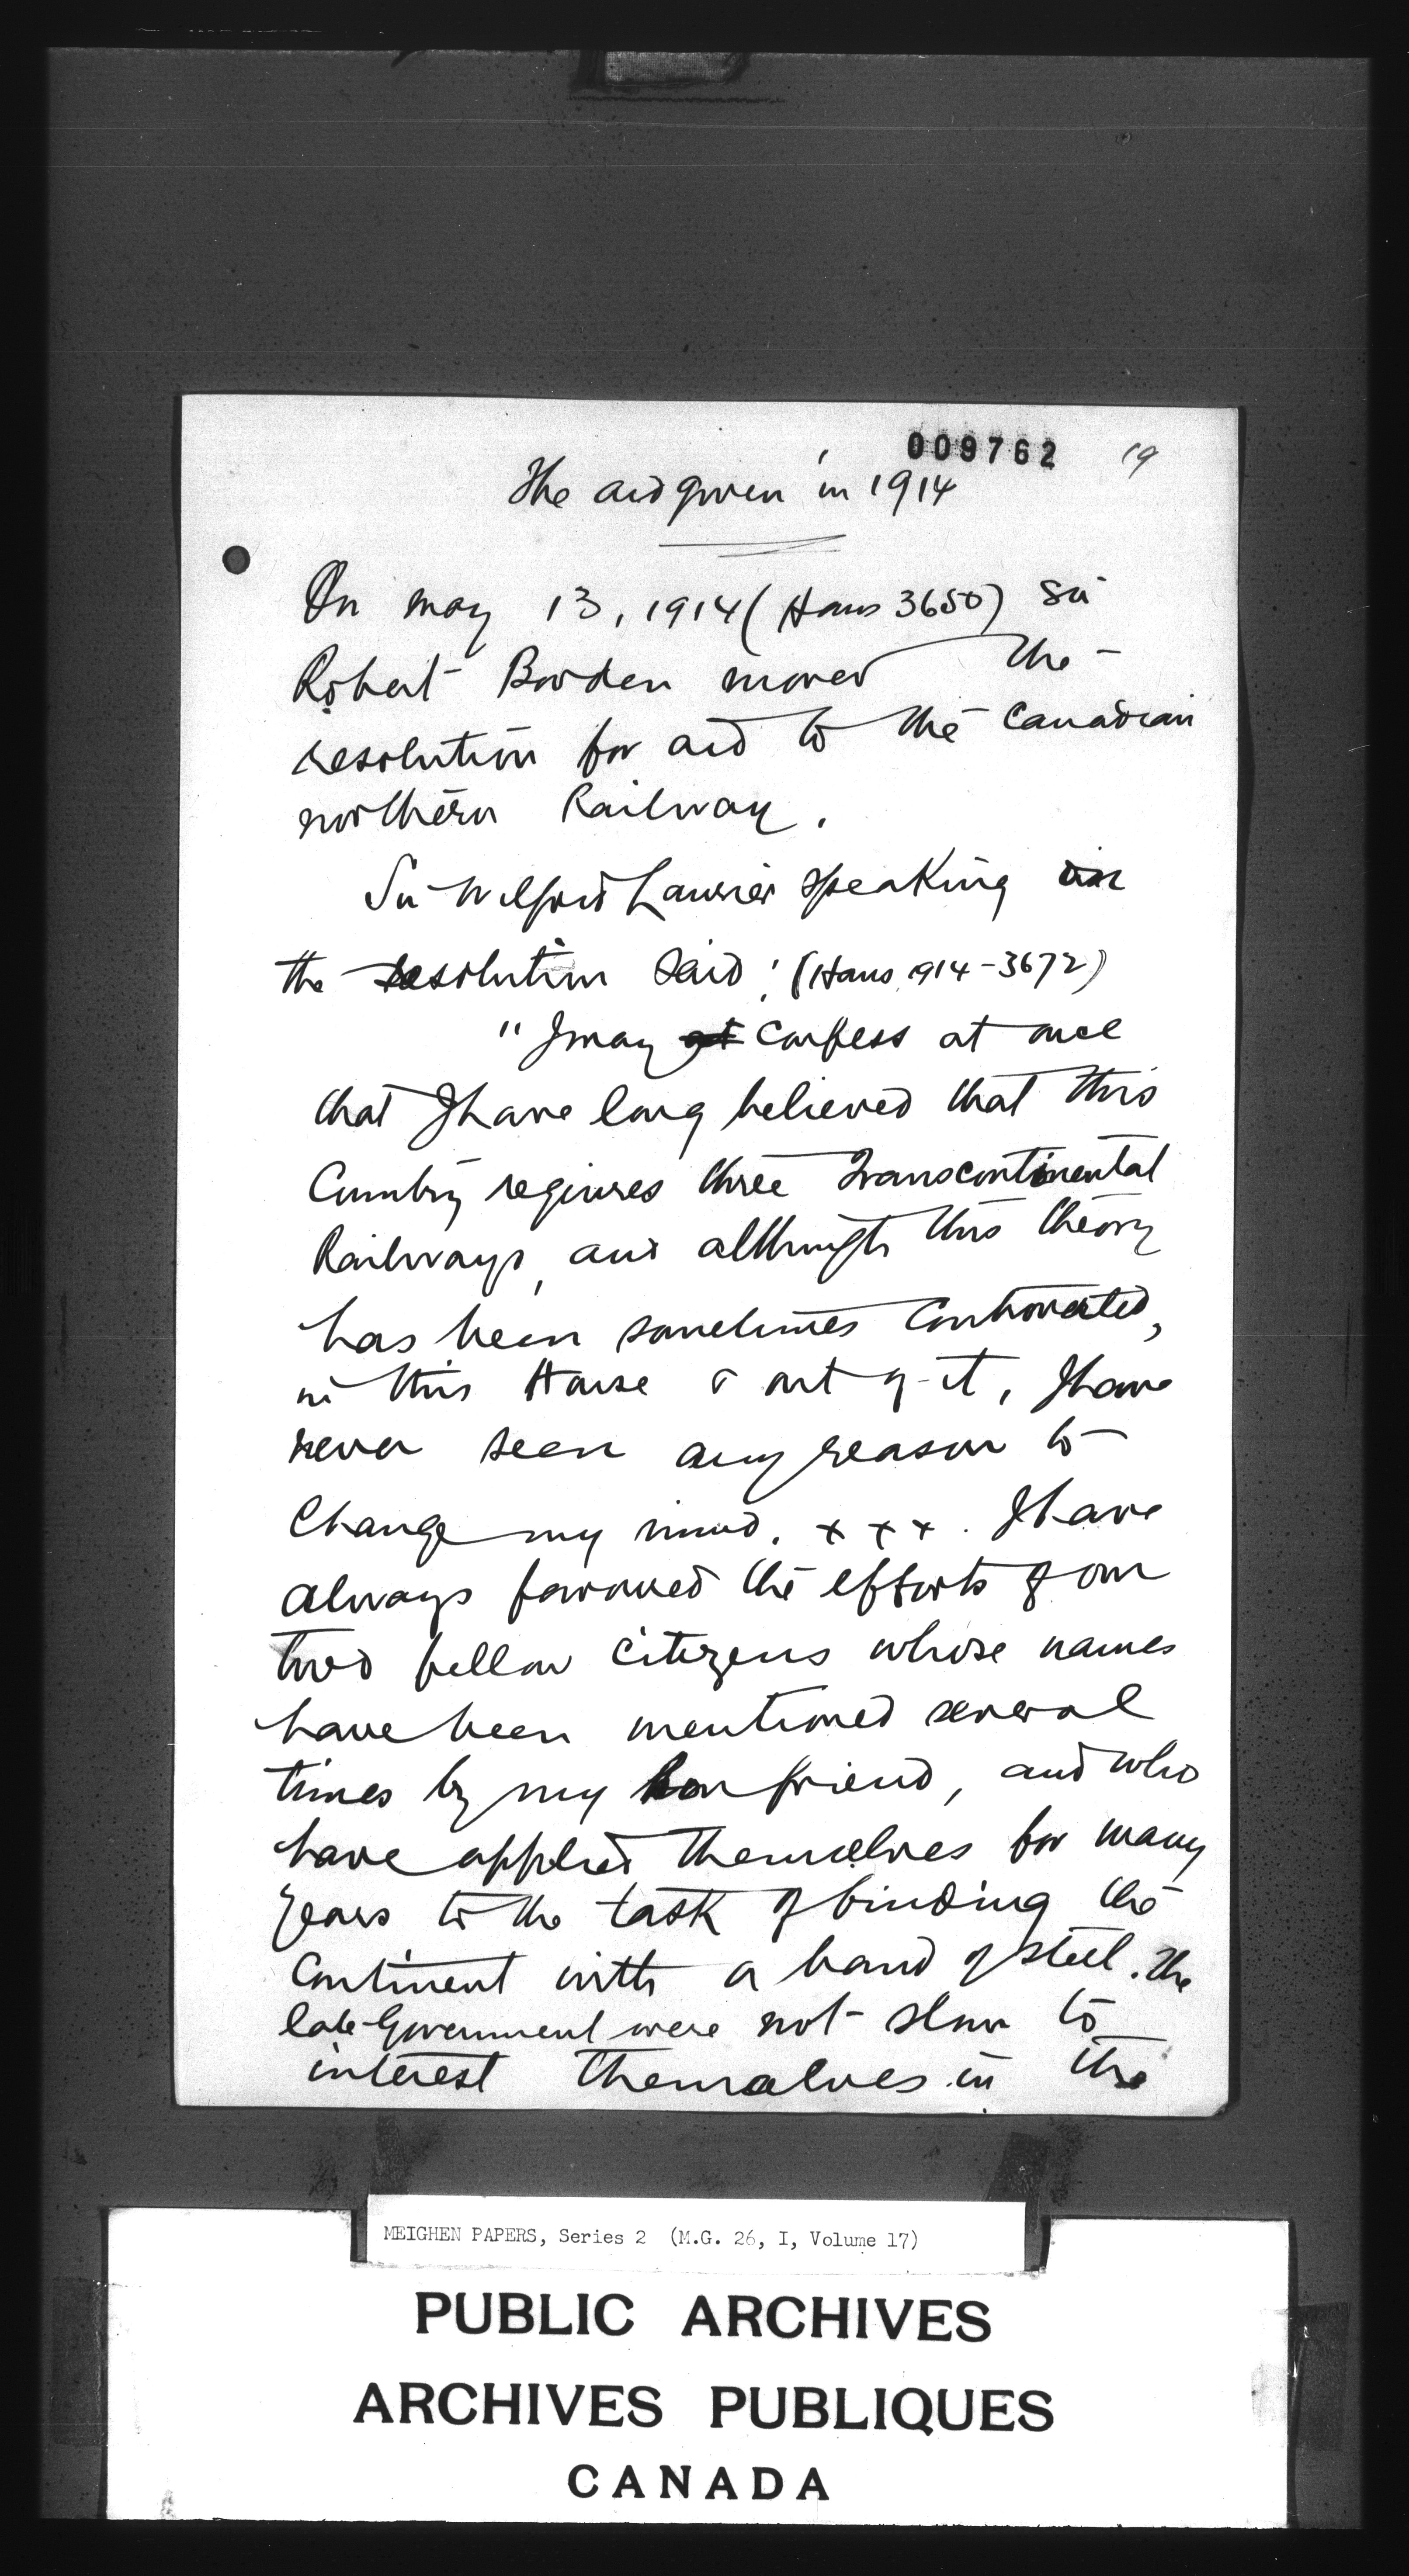 009762 19
The aid given in 1914
On may 13, 1914 (Hans 3650) Sir
Robert Borden moved the
resolution for aid to the Canadian
northern Railway.
Sir Wilfrid Laurier speaking on
the resolution said: (Hans. 1914-3672)
"I may at confess at once
that I have long believed that this
Country requires three Transcontinental
Railways, and although this theory
has been sometimes controverted,
in this House & out of it, I have
never seen any reason to
Change my mind. x x x. I have
always favoured the efforts of our
two fellow citizens whose names
have been mentioned several
times by my hon friend, and who
have applied themselves for many
years to the task of binding the
Continent with a band of steel. The
late Government were not slow to
interest themselves in the
MEIGHEN PAPERS, Series 2 (M.G. 26, I, Volume 17)
PUBLIC ARCHIVES
ARCHIVES PUBLIQUES
CANADA